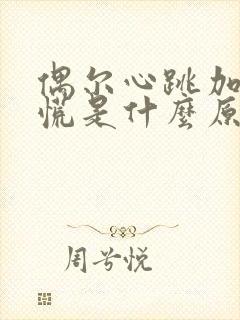 偶尔心跳加
慌是什麼原
周兮悦